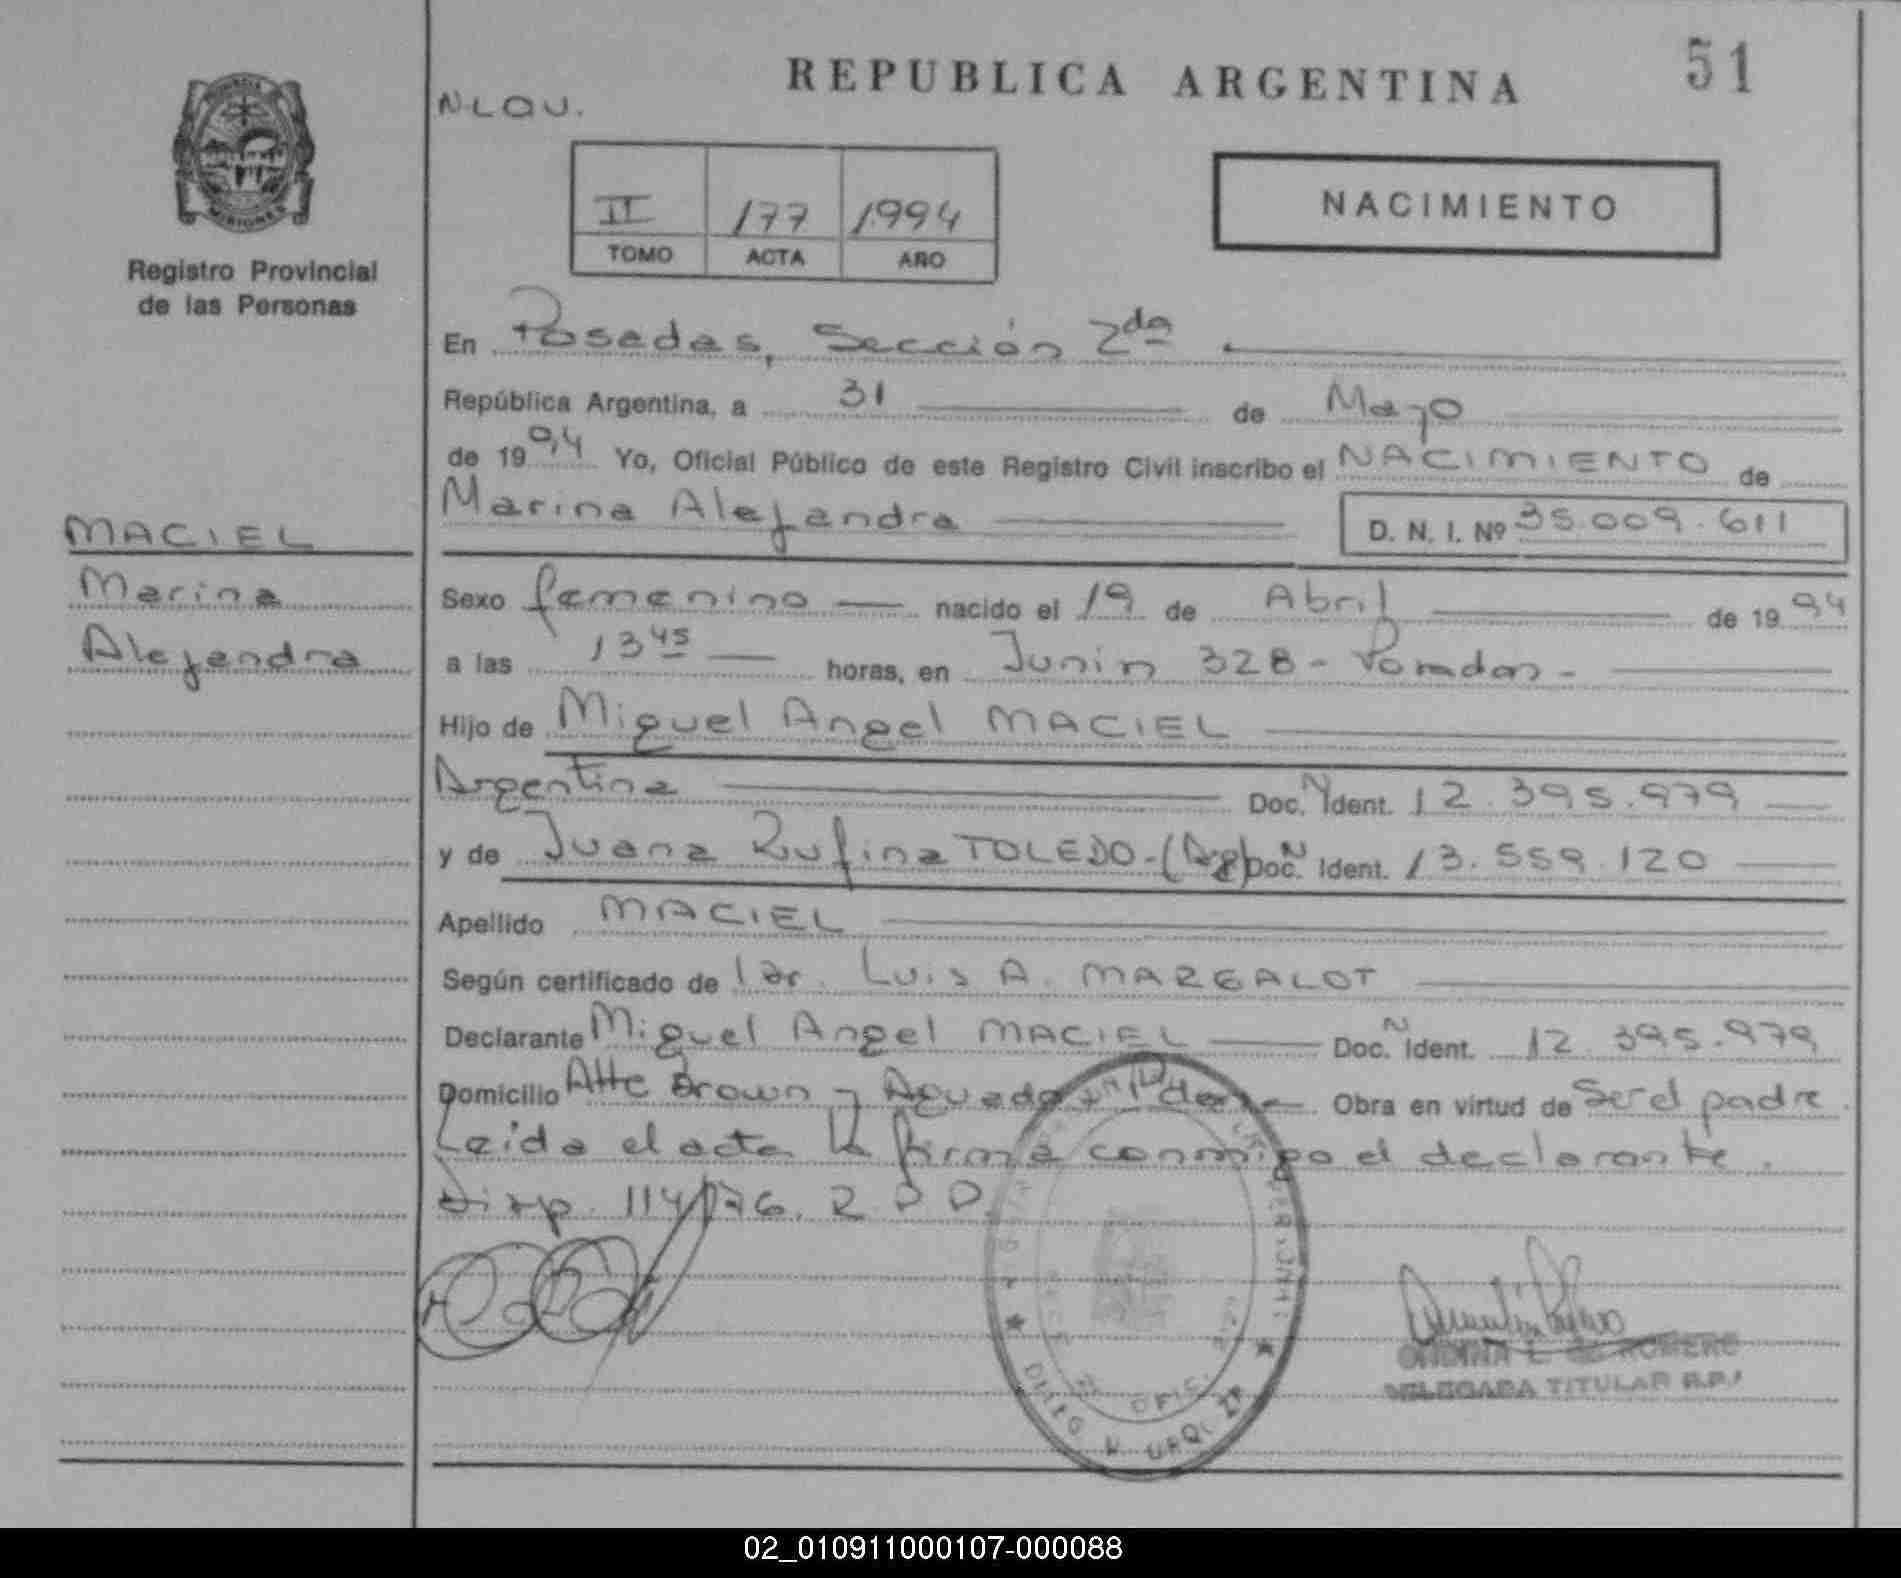 REPUBLICA ARGENTINA
51
N.LOU.
II 177 1994
TOMO ACTA AÑO
NACIMIENTO
MISIONES
Registro Provincial
de las Personas
En Posadas, Sección 2da
República Argentina, a 31 de Mayo
de 1994 Yo, Oficial Público de este Registro Civil inscribo el NACIMIENTO de
Marina Alejandra D. N. I. Nº 35.009.611
MACIEL
Marina
Alejandra
Sexo femenino nacido el 19 de Abril de 1994
a las 13 45 horas, en Junin 328 - Posadas -
Hijo de Miguel Angel MACIEL
Argentina Doc. N Ident. 12.395.979
y de Juana Rufina TOLEDO.-(Arg) Doc. N Ident. 13.559.120
Apellido MACIEL
Según certificado de l dr. Luis A. MARGALOT
Declarante Miguel Angel MACIEL Doc. N Ident. 12.395.979
Domicilio Alte Brown y Obra en virtud de Ser el padre.
Leida el acta la firma conmigo el declarante.
Disp. 114/76. R P P.
ONDINA E. de ROMERO
DELEGADA TITULAR R.P.P
02_010911000107-000088